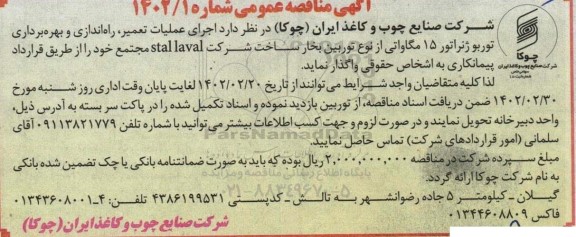 آگهی مناقصه عمومی شماره ۱۴۰۲/۱
شرکت صنایع چوب و کاغذ ایران (چوکا) در نظر دارد اجرای عملیات تعمیر، راه‌اندازی و بهره‌برداری
توربو ژنراتور ۱۵ مگاواتی از نوع توربین بخار ساخت شرکت stal laval مجتمع خود را از طریق قرارداد
پیمانکاری به اشخاص حقوقی واگذار نماید.
لذا کلیه متقاضیان واجد شرایط می‌توانند از تاریخ ۱۴۰۲/۰۲/۲۰ لغایت پایان وقت اداری روز شنبه مورخ
۱۴۰۲/۰۲/۳۰ ضمن دریافت اسناد مناقصه، از توربین بازدید نموده و اسناد تکمیل شده را در پاکت سر بسته به آدرس ذیل،
واحد دبیرخانه تحویل نمایند و در صورت لزوم و جهت کسب اطلاعات بیشتر می‌توانید با شماره تلفن ۰۹۱۱۳۸۲۱۷۷۹ آقای
سلمانی (امور قراردادهای شرکت) تماس حاصل نمایید.
مبلغ سپرده شرکت در مناقصه ۲,۰۰۰,۰۰۰,۰۰۰ ریال بوده که باید به صورت ضمانتنامه بانکی یا چک تضمین شده بانکی
به نام شرکت چوکا ارائه گردد.
گیلان - کیلومتر ۵ جاده رضوانشهر به تالش - کدپستی ۴۳۸۶۱۹۹۵۳۱ تلفن: ۴-۰۱۳۴۴۶۰۸۰۰۱
فاکس ۰۱۳۴۴۶۰۸۸۰۹
شرکت صنایع چوب و کاغذ ایران (چوکا)
چوکا
شرکت صنایع چوب و کاغذ ایران
ParsNamadData
۰۲۱-۸۸۳۴۹۶۷۰-۵